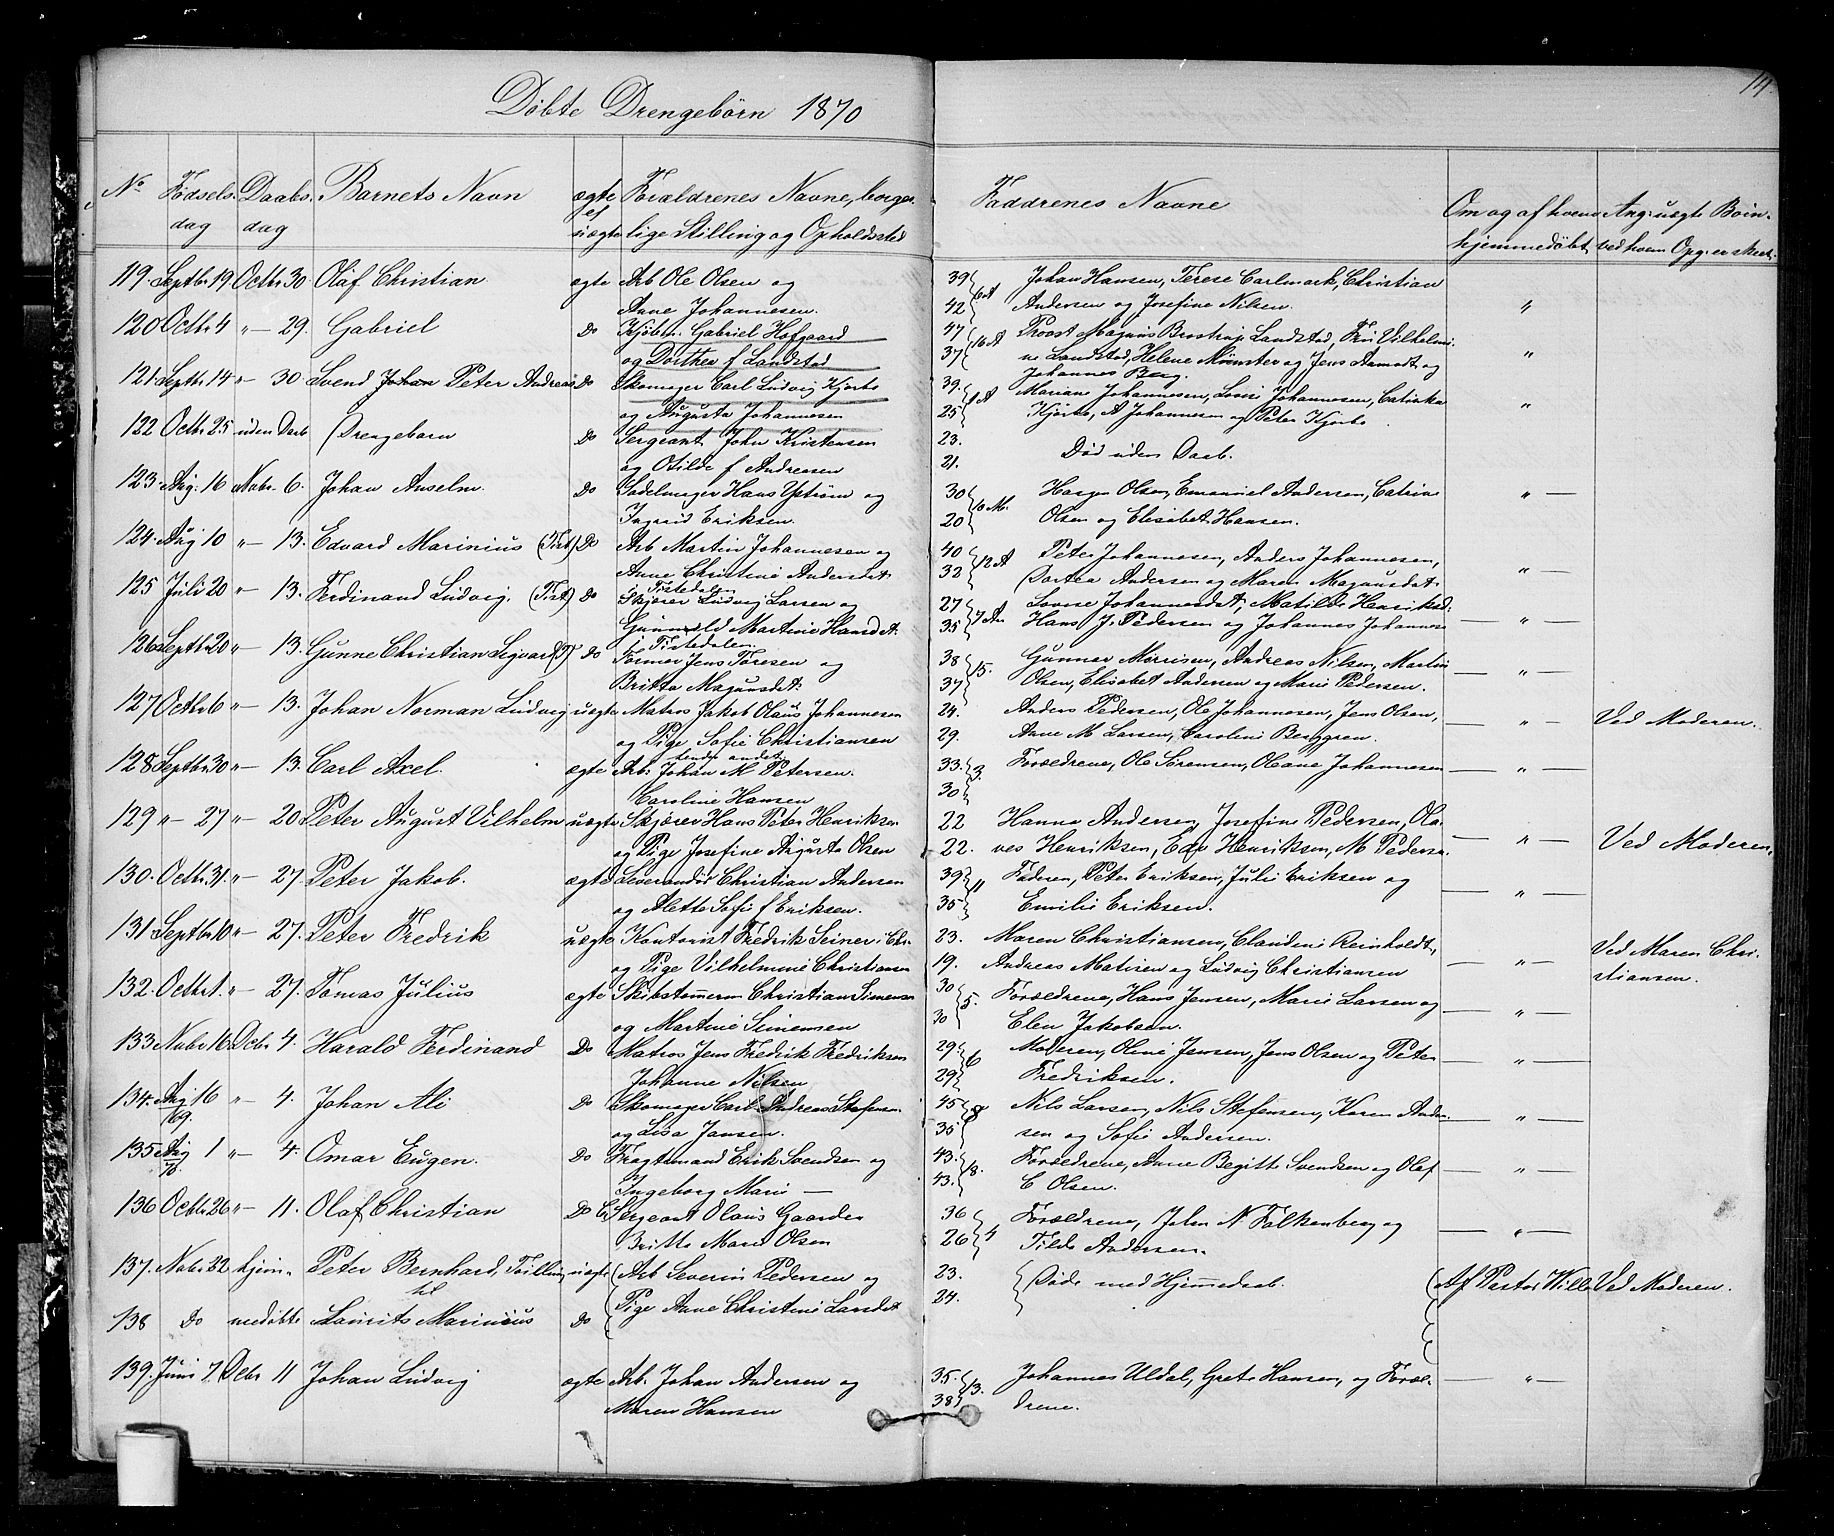 Döbte Drengebörn 1870
14.
No Födselsdag Daabsdag Barnets Navn ægte el uægte Forældrenes Navne, borgerlige Stilling og Opholdssted Faddrenes Navne Om og af hvem hjemmedöbt Ang. uægte Börn ved hvem Opg. er skeet
119. Septbr 19. Octbr 30. Olaf Christian ægte Arb Ole Olsen og 39 Johan Hansen, Terese Carlmark, Christian
Anne Johannesen. 42 6 A Andersen og Josefine Nilsen. "
120 Octbr 4 "- 29. Gabriel Do Kjöbm. Gabriel Hofgaard 47 Provst Magnus Brostrup Landstad, Fru Vilhelmi-
og Dorthea f Landstad 37 16 A ne Landstad, Helene Mönster og Jens Aamodt og "
Johannes Berg.
121. Septbr 14 "- 30 Svend Johan Peter Andreas Do Skomager Carl Ludvig Kjorbo 39. Mariane Johannesen, Lovise Johannesen, Catinka
og Augusta Johannesen 25 1 A Kjorbo, A Johannesen og Peter Kjorbo. "
122 Octbr 25 uden Daab Drengebarn Do Sergeant John Kristensen 23.
og Otilde f Andreasen 21. Död uden Daab.
123. Aug. 16 Nobr. 6. Johan Anselm. Do Sadelmager Hans Yström og 30 Olsen, Emanuel Andersen, Catrine
Ingrid Eriksen. 20 10 M. Olsen og Elisabet Hansen. " —
124. Aug 10 "- 13. Edvard Marinius (Tist) Do Arb Martin Johannesen og 40 Peter Johannesen, Anders Johannesen,
Anne Christine Andersdat. 32 12 A Dortea Andersen og Maren Magnusdat. " —
Tistedalen
125 Juli 20 "- 13. Ferdinand Ludvig. (Tist) Do Skjærer Ludvig Larsen og 27 Lovise Johannesdat, Matilde Henriksd.
Gunnild Martine Hansdat. 35 Hans J. Pedersen og Johannes Johannes — " —
i Tistedalen.
126 Septbr 20 "- 13. Gunne Christian Sigvard (T) Do Former Jens Töresen og 38 Gunnar Andreas Nilsen, Martin
Britta Magnusdat. 37 15. Olsen, Elisabet Andersen og Marie Pedersen. — " —
127 Octbr 6 "- 13. Johan Norman Ludvig uægte Matros Jakob Olaus Johannesen 24. Anders Pedersen, Ole Johannesen, Jens Olsen,
og Pige Sofie Christiansen 29. Anne M Larsen, Caroline Berggren. — " — Ved Moderen.
128 Septbr 30 "- 13. Carl Axel. ægte Arb. Johan M Petersen. 33. Forældrene, Ole Sörensen, Oleane Johannesen — " —
Caroline Hansen 30 3.
129 "- 27 "- 20 Peter August Vilhelm uægte Skjærer Hans Peter Henriksen 22 Hanna Andersen, Josefine Pedersen, Ola-
og Pige Josefine Augusta Olsen 22. ves Henriksen, Edv Henriksen, M Pedersen — " — Ved Moderen,
130. Octbr 31. "- 27. Peter Jakob. ægte Leverandör Christian Andersen 39 Faderen, Peter Eriksen, Julie Eriksen og
og Alette Sofie f Eriksen. 35 11 Emilie Eriksen. — " —
131 Septbr 10 "- 27. Peter Fredrik uægte Kontorist Fredrik Seiner i Chr. 23. Maren Christiansen, Claudine Reinholdt,
og Pige Vilhelmine Christiansen 19. Andreas Matisen og Ludvig Christiansen — " — Ved Maren Chri-
stiansen.
132. Octbr 1. "- 27. Tomas Julius ægte Skibstömmerm Christian Simensen 30 Forældrene, Hans Jensen, Marie Larsen og
og Martine Simensen 30 5. Elen Jakobsen. — " —
133 Nobr 16 Dcbr 4. Harald Ferdinand Do Matros Jens Fredrik Fredriksen 29 Moderen, Oline Jensen, Jens Olsen og Peter
Johanne Nilsen 29 6 Fredriksen. — " —
134. Aug 16 "- 4. Johan Ali Do Skomager Carl Andreas Stefensen 45 Nils Larsen, Nils Stefensen, Karen Ander-
69. og Lisa Jansen. 35 8 sen og Sofie Andersen. — " —
135 Aug 1 "- 4. Omar Eugen. Do Fragtemand Erik Svendsen og 43. Forældrene, Anne Begitte Svendsen og Olaf
70. Ingeborg Marie — 43. 18. C Olsen. — " —
136 Octbr 26 "- 11. Olaf Christian Do Sergeant Olaus Gaarder 36 Forældrene, John N Falkenberg og
Britte Marie Olsen 26 4 Tilde Andersen. — " —
137. Nobr 22 hjem- Peter Bernhard, Tvilling uægte Arb Severin Pedersen og 23. Döde med Hjemmedaab. Af Pastor Wille Ved Moderen.
138 Do medöbte Laurits Marinius Do Pige Anne Christine Larsdat 24.
139. Juni 7. Dcbr 11 Johan Ludvig ægte Arb. Johan Andersen og 35. Johannes Uldal, Grete Hansen, og Foræl- — " —
Maren Hansen 38 13. drene.